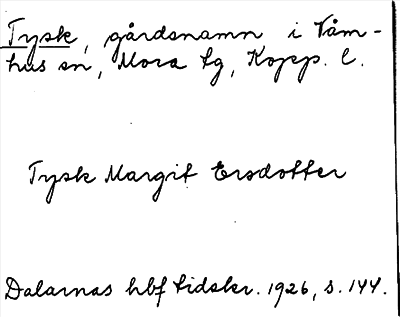 Tysk, gårdsnamn i Våm-
hus sn, Mora tg, Kopp. l.
Tysk Margit Ersdotter
Dalarnas hbf tidskr. 1926, s. 144.